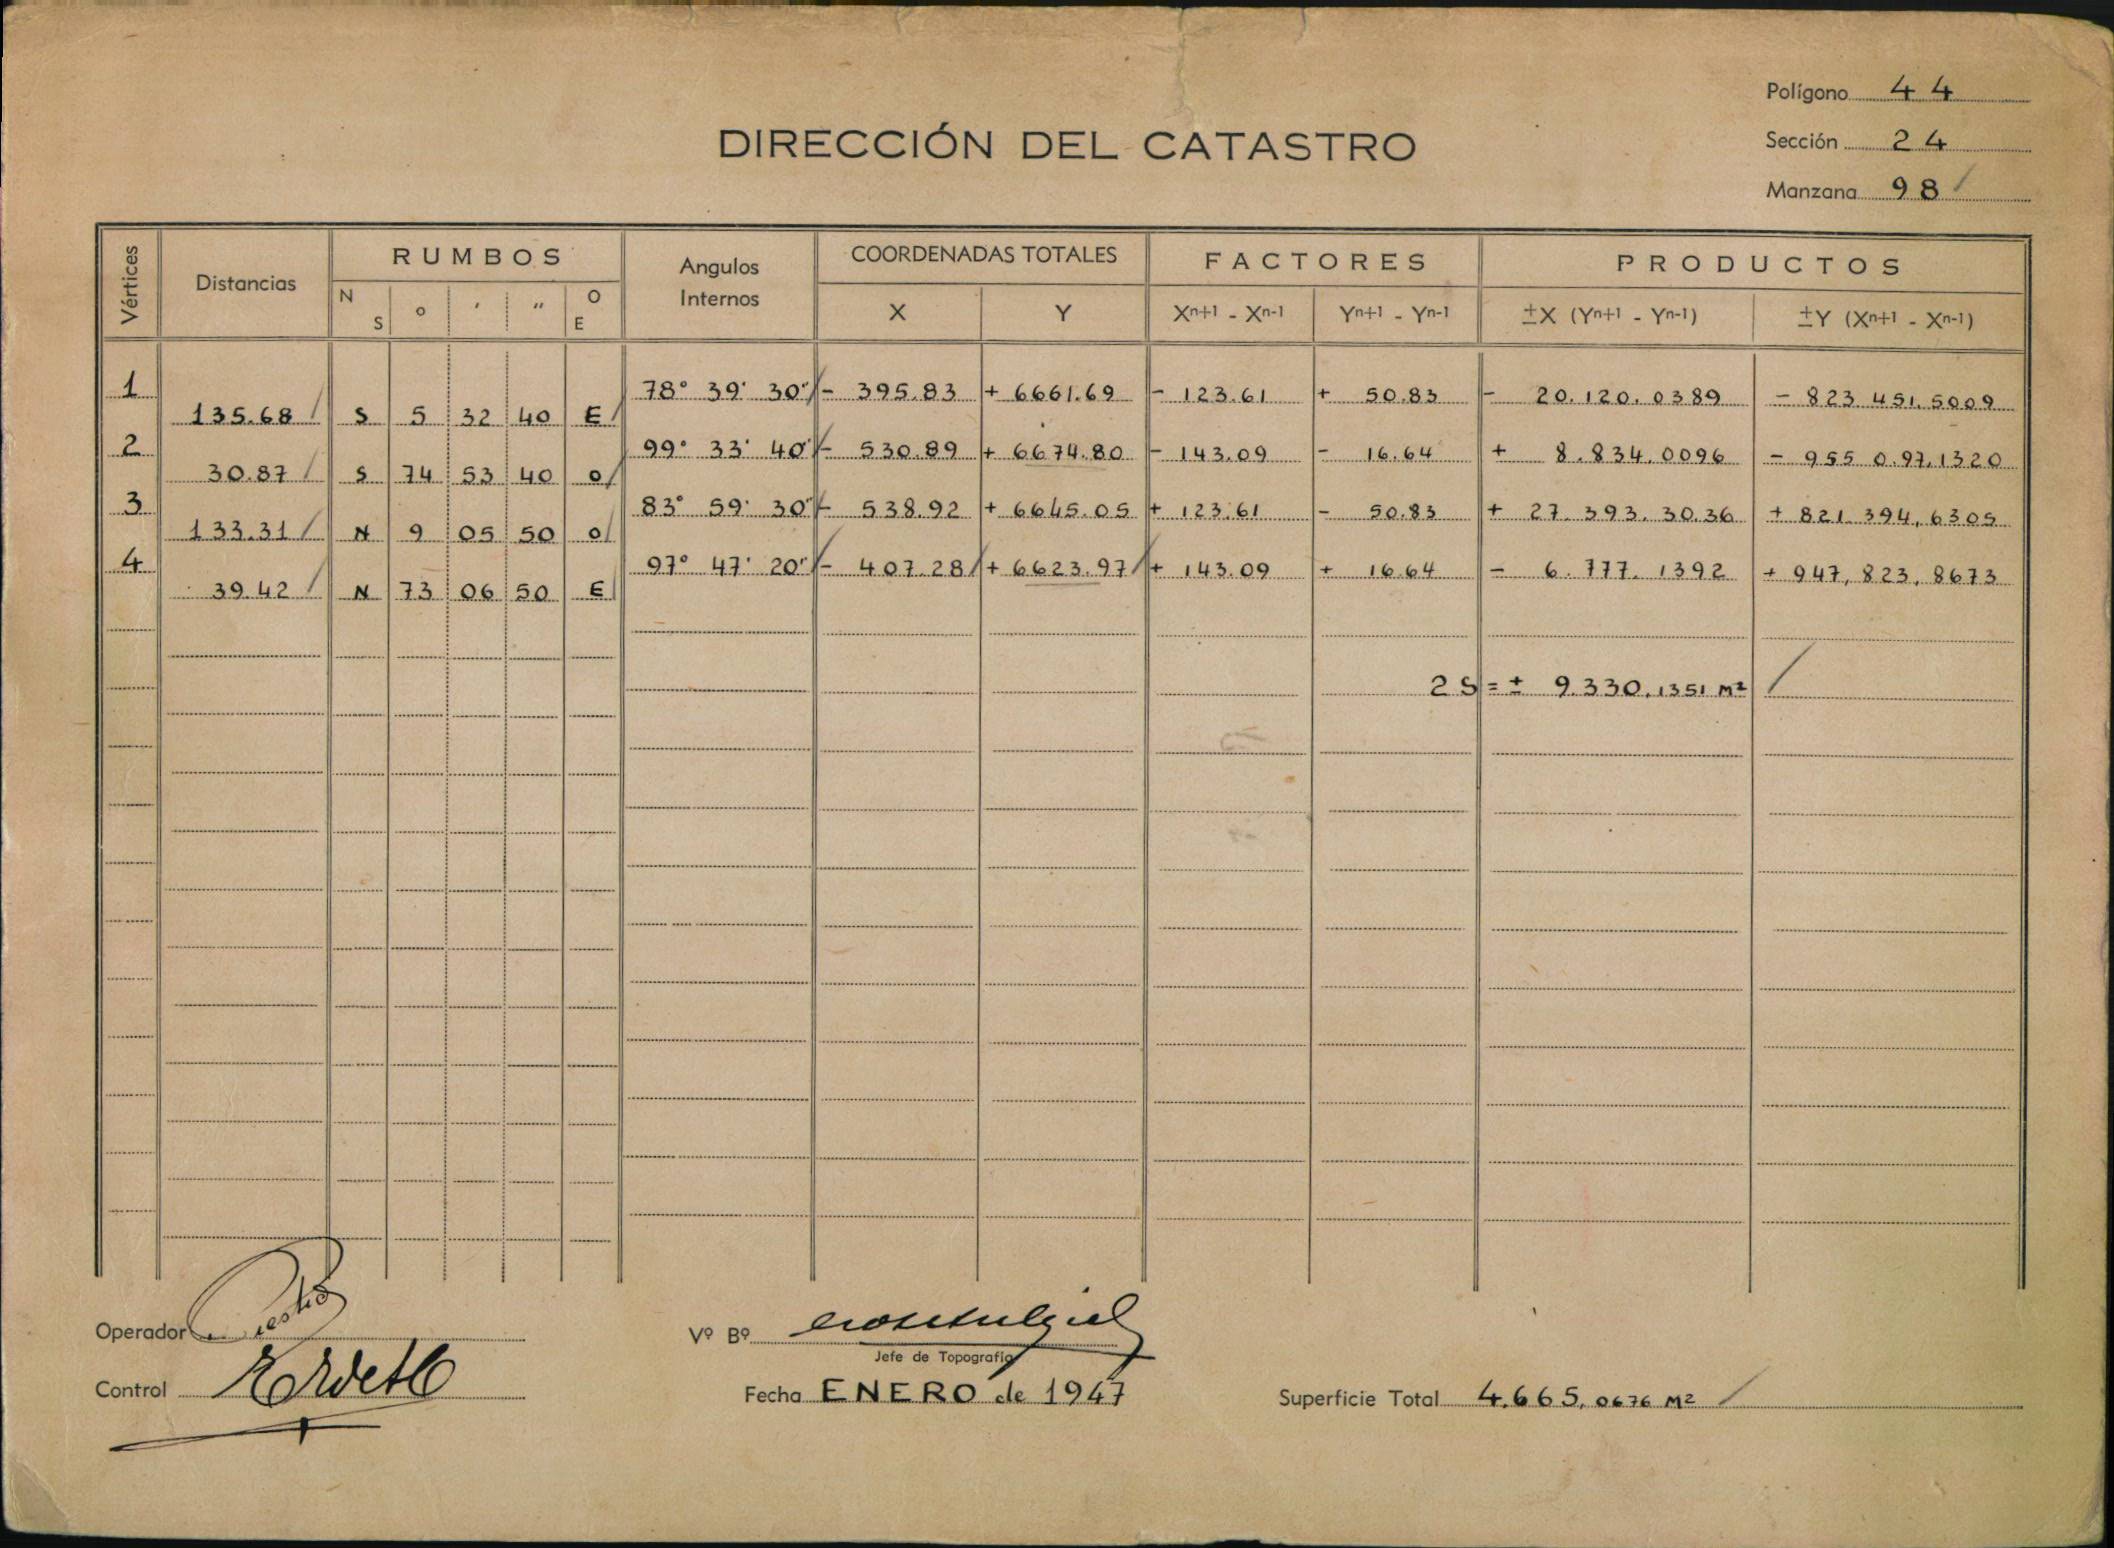 Polígono 44
DIRECCIÓN DEL CATASTRO
Sección 24
Manzana 98
Vértices Distancias RUMBOS Angulos Internos COORDENADAS TOTALES FACTORES PRODUCTOS
N S ° ' " O E X Y Xn+1 - Xn-1 Yn+1 - Yn-1 ±X (Yn+1 - Yn-1) ±Y (Xn+1 - Xn-1)
1 78° 39' 30" - 395.83 + 6661.69 - 123.61 + 50.83 - 20.120.0389 - 823.451.5009
135.68 S 5 32 40 E
2 99° 33' 40" - 530.89 + 6674.80 - 143.09 - 16.64 + 8.834.0096 - 955 0.97.1320
30.87 S 74 53 40 O
3 83° 59' 30" - 538.92 + 6645.05 + 123.61 - 50.83 + 27.393.3036 + 821.394,6305
133.31 N 9 05 50 O
4 97° 47' 20" - 407.28 + 6623.97 + 143.09 + 16.64 - 6.777.1392 + 947,823,8673
39.42 N 73 06 50 E
2 S = ± 9.330,1351 M²
Operador
Vº Bº
Jefe de Topografía
Control
Fecha ENERO de 1947
Superficie Total 4.665,0676 M²